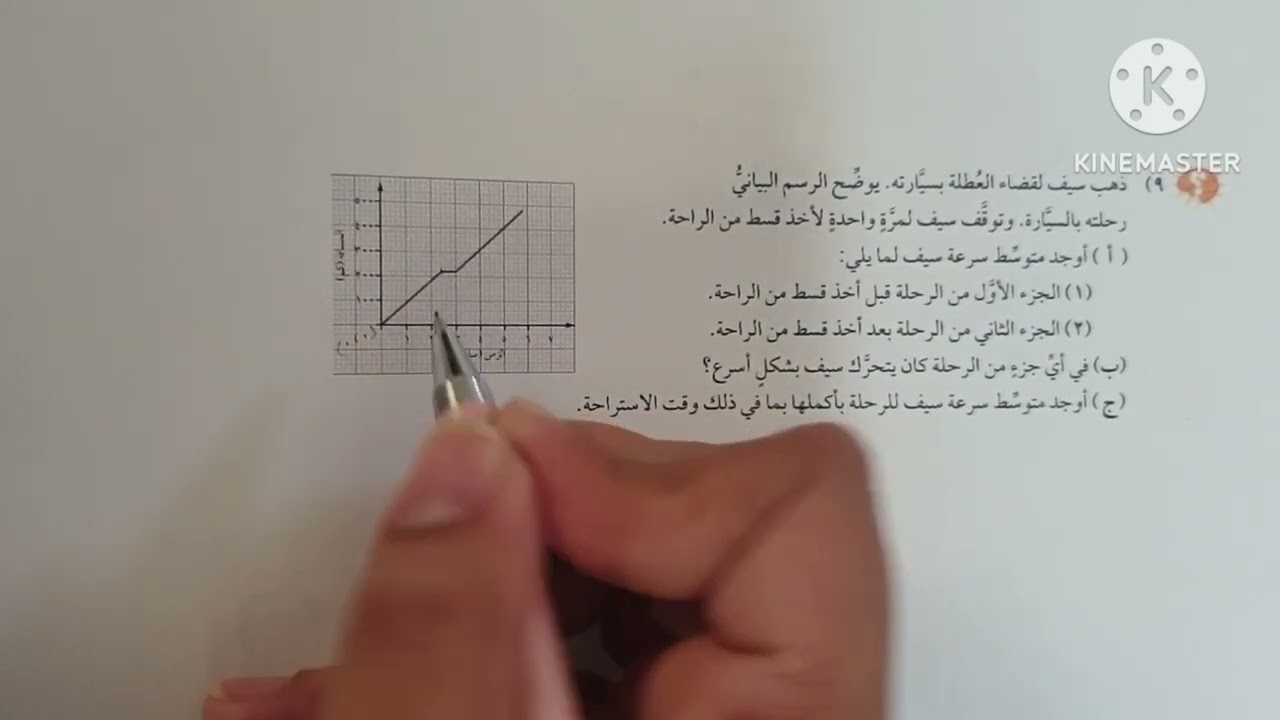 KINEMASTER
٩) ذهب سيف لقضاء العُطلة بسيَّارته. يوضِّح الرسم البيانيُّ
رحلته بالسيَّارة. وتوقَّف سيف لمرَّةٍ واحدةٍ لأخذ قسط من الراحة.
( أ ) أوجد متوسِّط سرعة سيف لما يلي:
(١) الجزء الأوَّل من الرحلة قبل أخذ قسط من الراحة.
(٢) الجزء الثاني من الرحلة بعد أخذ قسط من الراحة.
(ب) في أيِّ جزءٍ من الرحلة كان يتحرَّك سيف بشكلٍ أسرع؟
(ج) أوجد متوسِّط سرعة سيف للرحلة بأكملها بما في ذلك وقت الاستراحة.
المسافة (كم)
الزمن
١ ٤ ٥ ٦ ٧